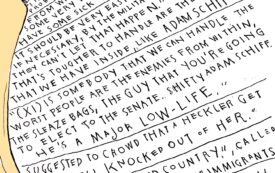 HAVE SOME SICK
IT SHOULD BE VERY EASILY
IF NECESSARY, BY THE
CAN'T LET THAT HAPPEN."
THAT'S TOUGHER TO HANDLE ARE THE
THAT WE HAVE INSIDE, LIKE ADAM SCHIFF
"(XI) IS SOMEBODY THAT WE CAN HANDLE. THE
WORST PEOPLE ARE THE ENEMIES FROM WITHIN,
THE SLEAZE BAGS, THE GUY THAT YOU'RE GOING
TO ELECT TO THE SENATE.. SHIFTY ADAM SCHIFF.
HE'S A MAJOR LOW-LIFE."
SUGGESTED TO CROWD THAT A HECKLER GET
KNOCKED OUT OF HER."
COUNTRY," CALLE
IMMIGRANTS